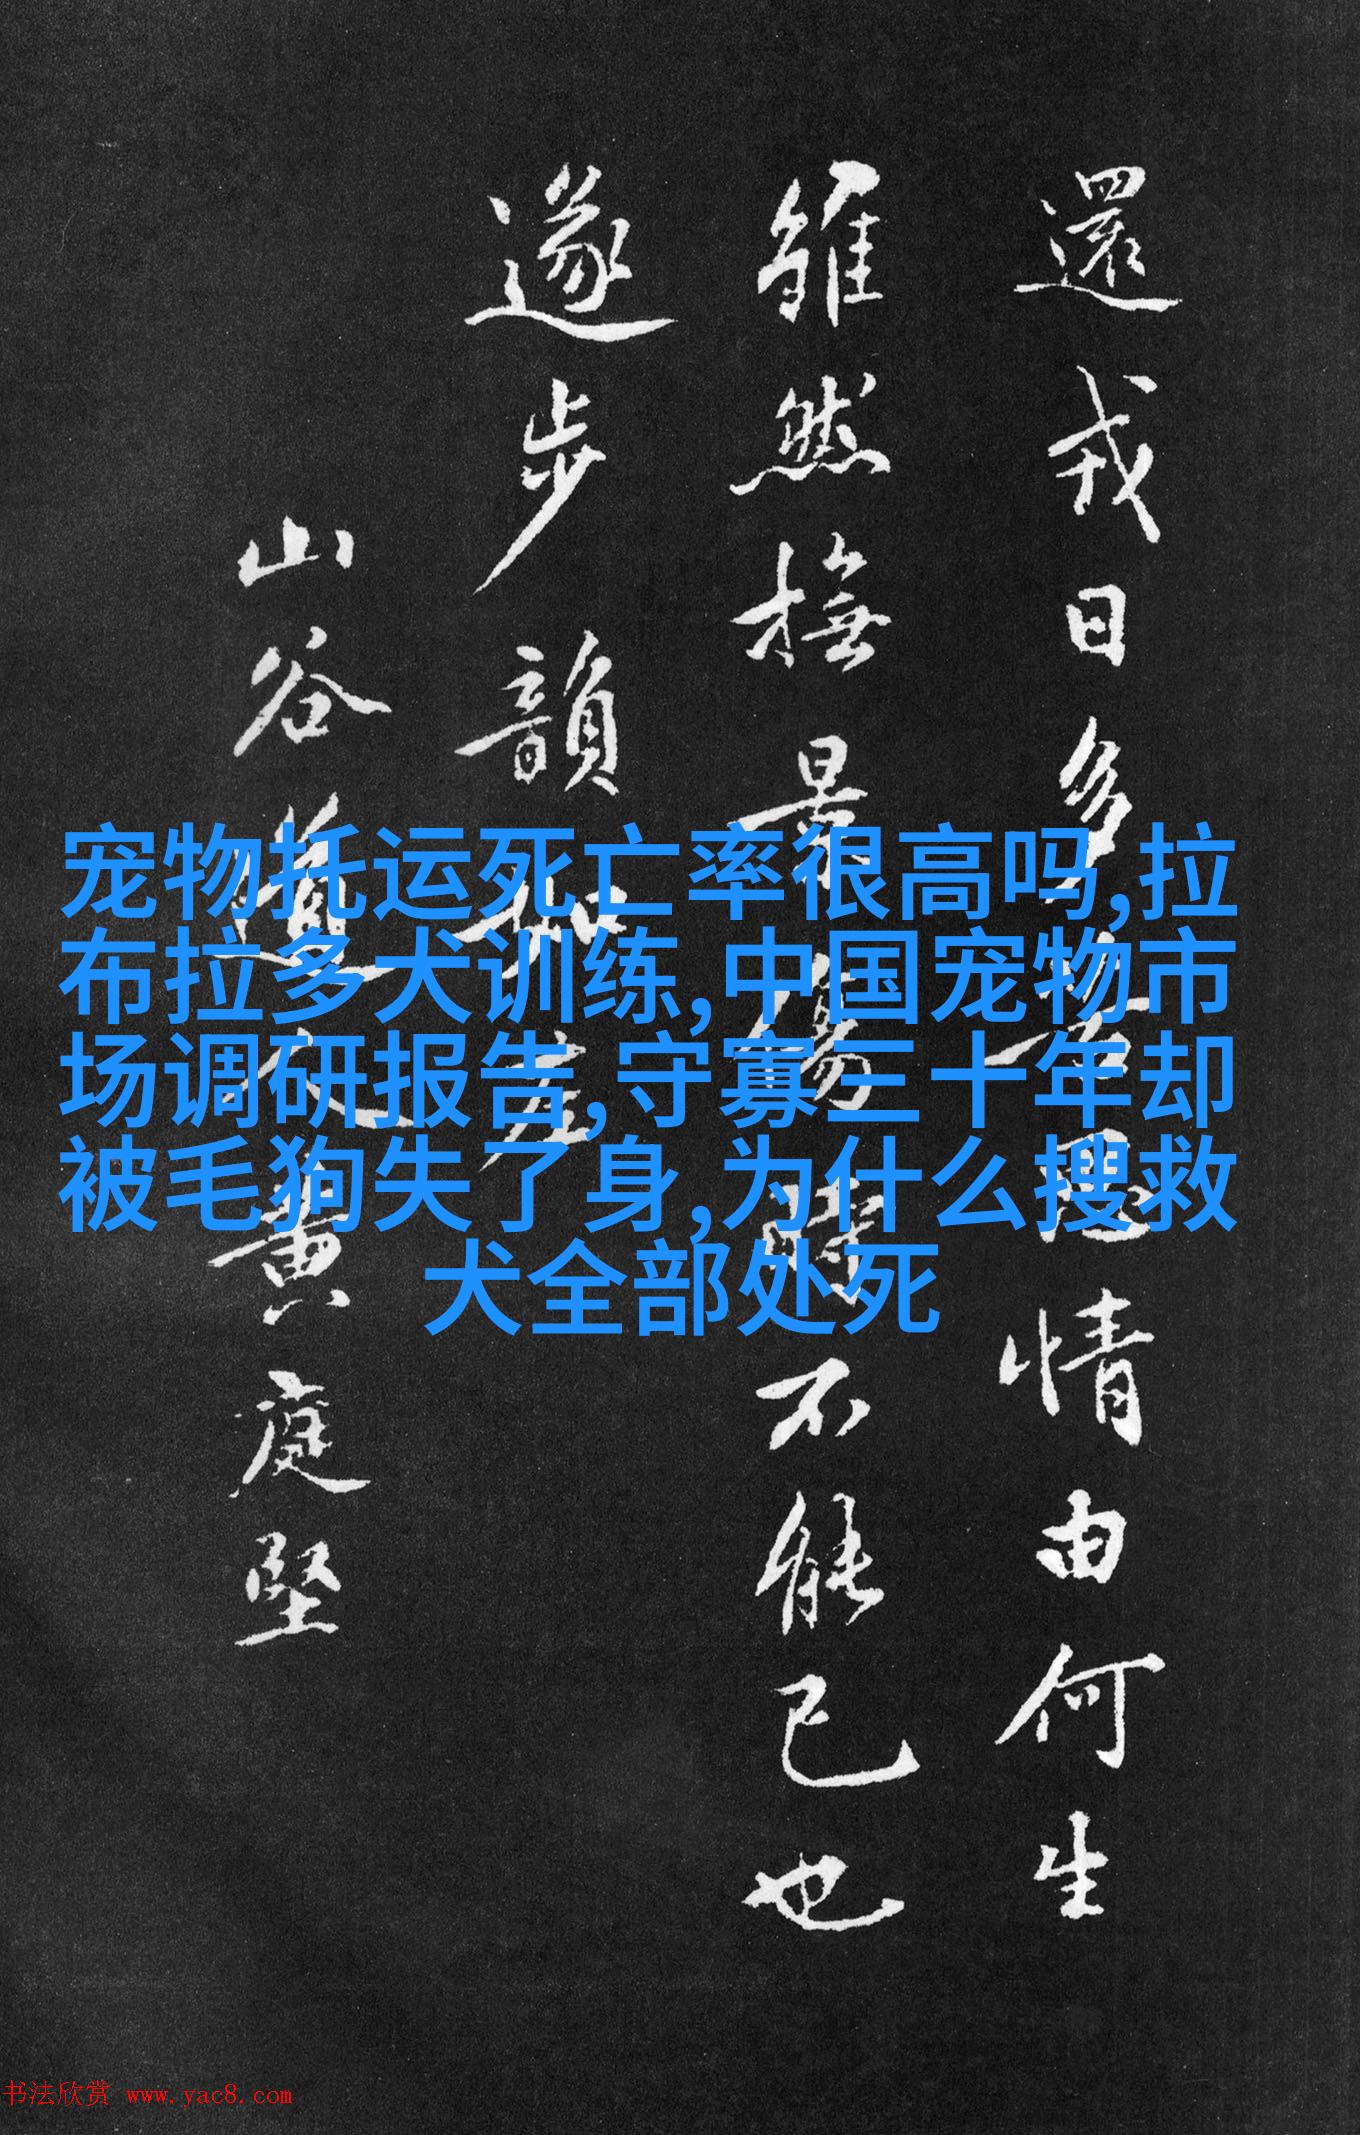 宠物托运死亡率很高吗,拉
布拉多犬训练,中国宠物市
场调研报告,守寡三十年却
被毛狗失了身,为什么搜救
犬全部处死
還戎日多情由何生
雖然撫景傷時不能已也
遂步韻如左
山谷道人黃庭堅
书法欣赏 www.yac8.com